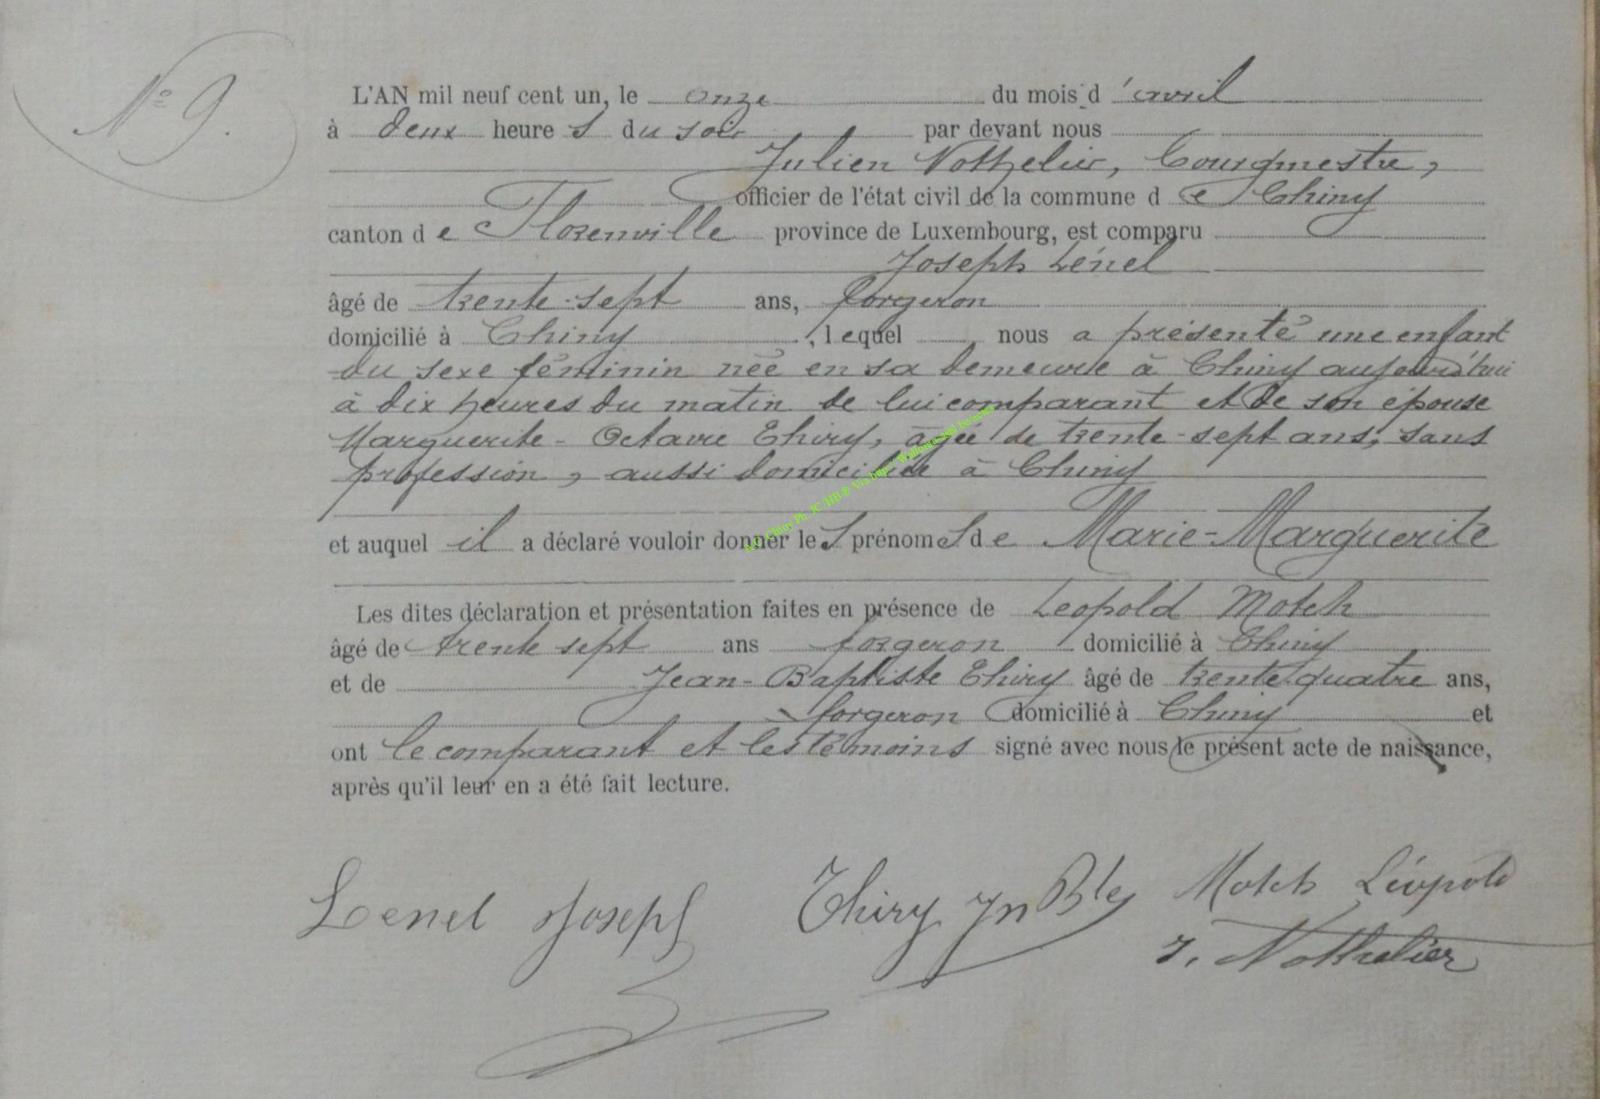 N° 9.
L'AN mil neuf cent un, le onze du mois d'avril
à deux heures du soir par devant nous
Julien Nothelier, Bourgmestre,
officier de l'état civil de la commune de Chiny
canton de Florenville province de Luxembourg, est comparu
Joseph Lénel
âgé de trente-sept ans, forgeron
domicilié à Chiny, lequel nous a présenté une enfant
du sexe féminin née en sa demeure à Chiny aujourd'hui
à dix heures du matin de lui comparant et de son épouse
Marguerite-Octavie Thiry, âgée de trente-sept ans, sans
profession, aussi domiciliée à Chiny
et auquel il a déclaré vouloir donner les prénoms de Marie-Marguerite
Les dites déclaration et présentation faites en présence de Léopold Motch
âgé de trente sept ans forgeron domicilié à Chiny
et de Jean-Baptiste Thiry âgé de trente quatre ans,
forgeron domicilié à Chiny et
ont le comparant et les témoins signé avec nous le présent acte de naissance,
après qu'il leur en a été fait lecture.
Lenel Joseph Thiry Jn Bte Motch Léopold
J. Nothelier